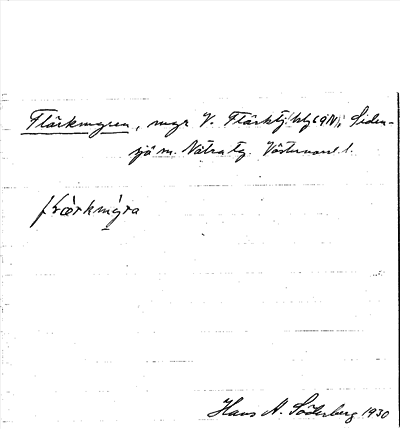 Flärkmyren, myr V. Flärktj. i Siden-
sjö sn. Nätra tg. Västernorrl. l.
Hans A. Söderberg 1930